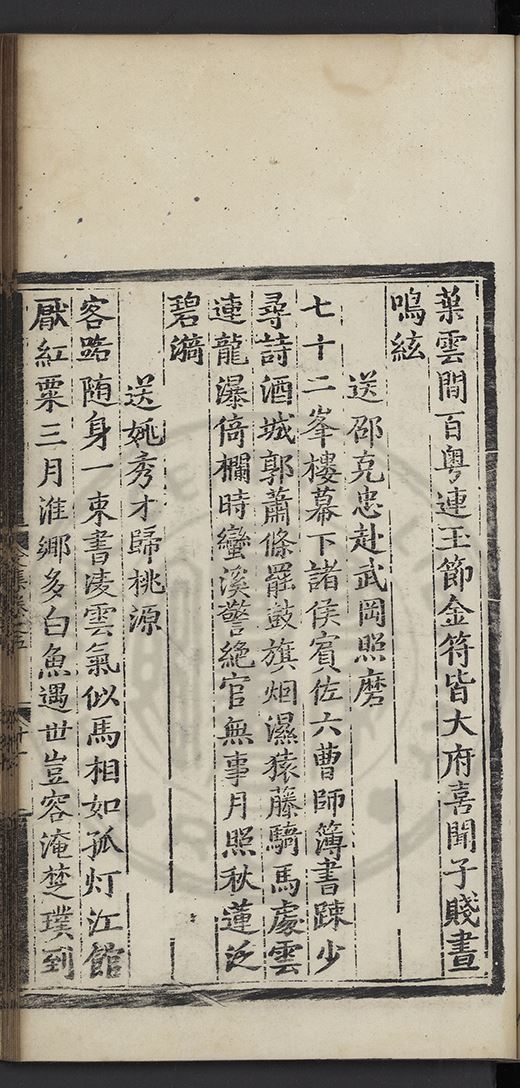 葉雲間百粵連玉節金符皆大府喜聞子賤晝
鳴絃
送邵克忠赴武岡照磨
七十二峯樓幕下諸侯賓佐六曹師簿書踈少
尋詩酒城郭蕭條罷鼓旗烟濕猿藤騎馬處雲
連龍瀑倚欄時蠻溪警絶官無事月照秋蓮泛
碧漪
送姚秀才歸桃源
客路随身一束書凌雲氣似馬相如孤灯江館
厭紅粟三月淮鄉多白魚遇世豈容淹楚璞到